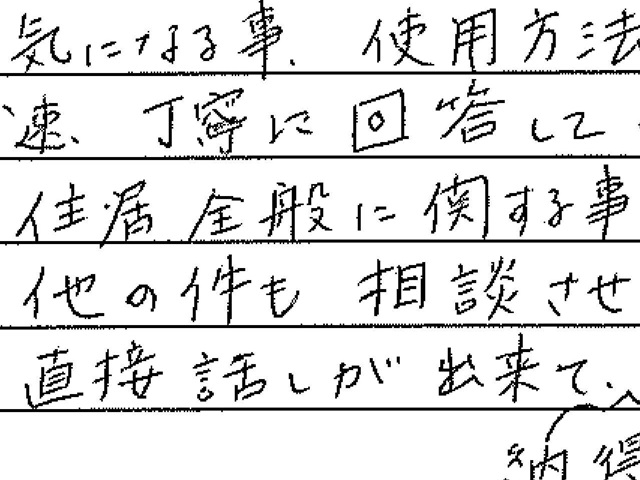 気になる事、使用方法
速、丁寧に回答して
住居全般に関する事
他の件も相談させ
直接話しが出来て、
納得